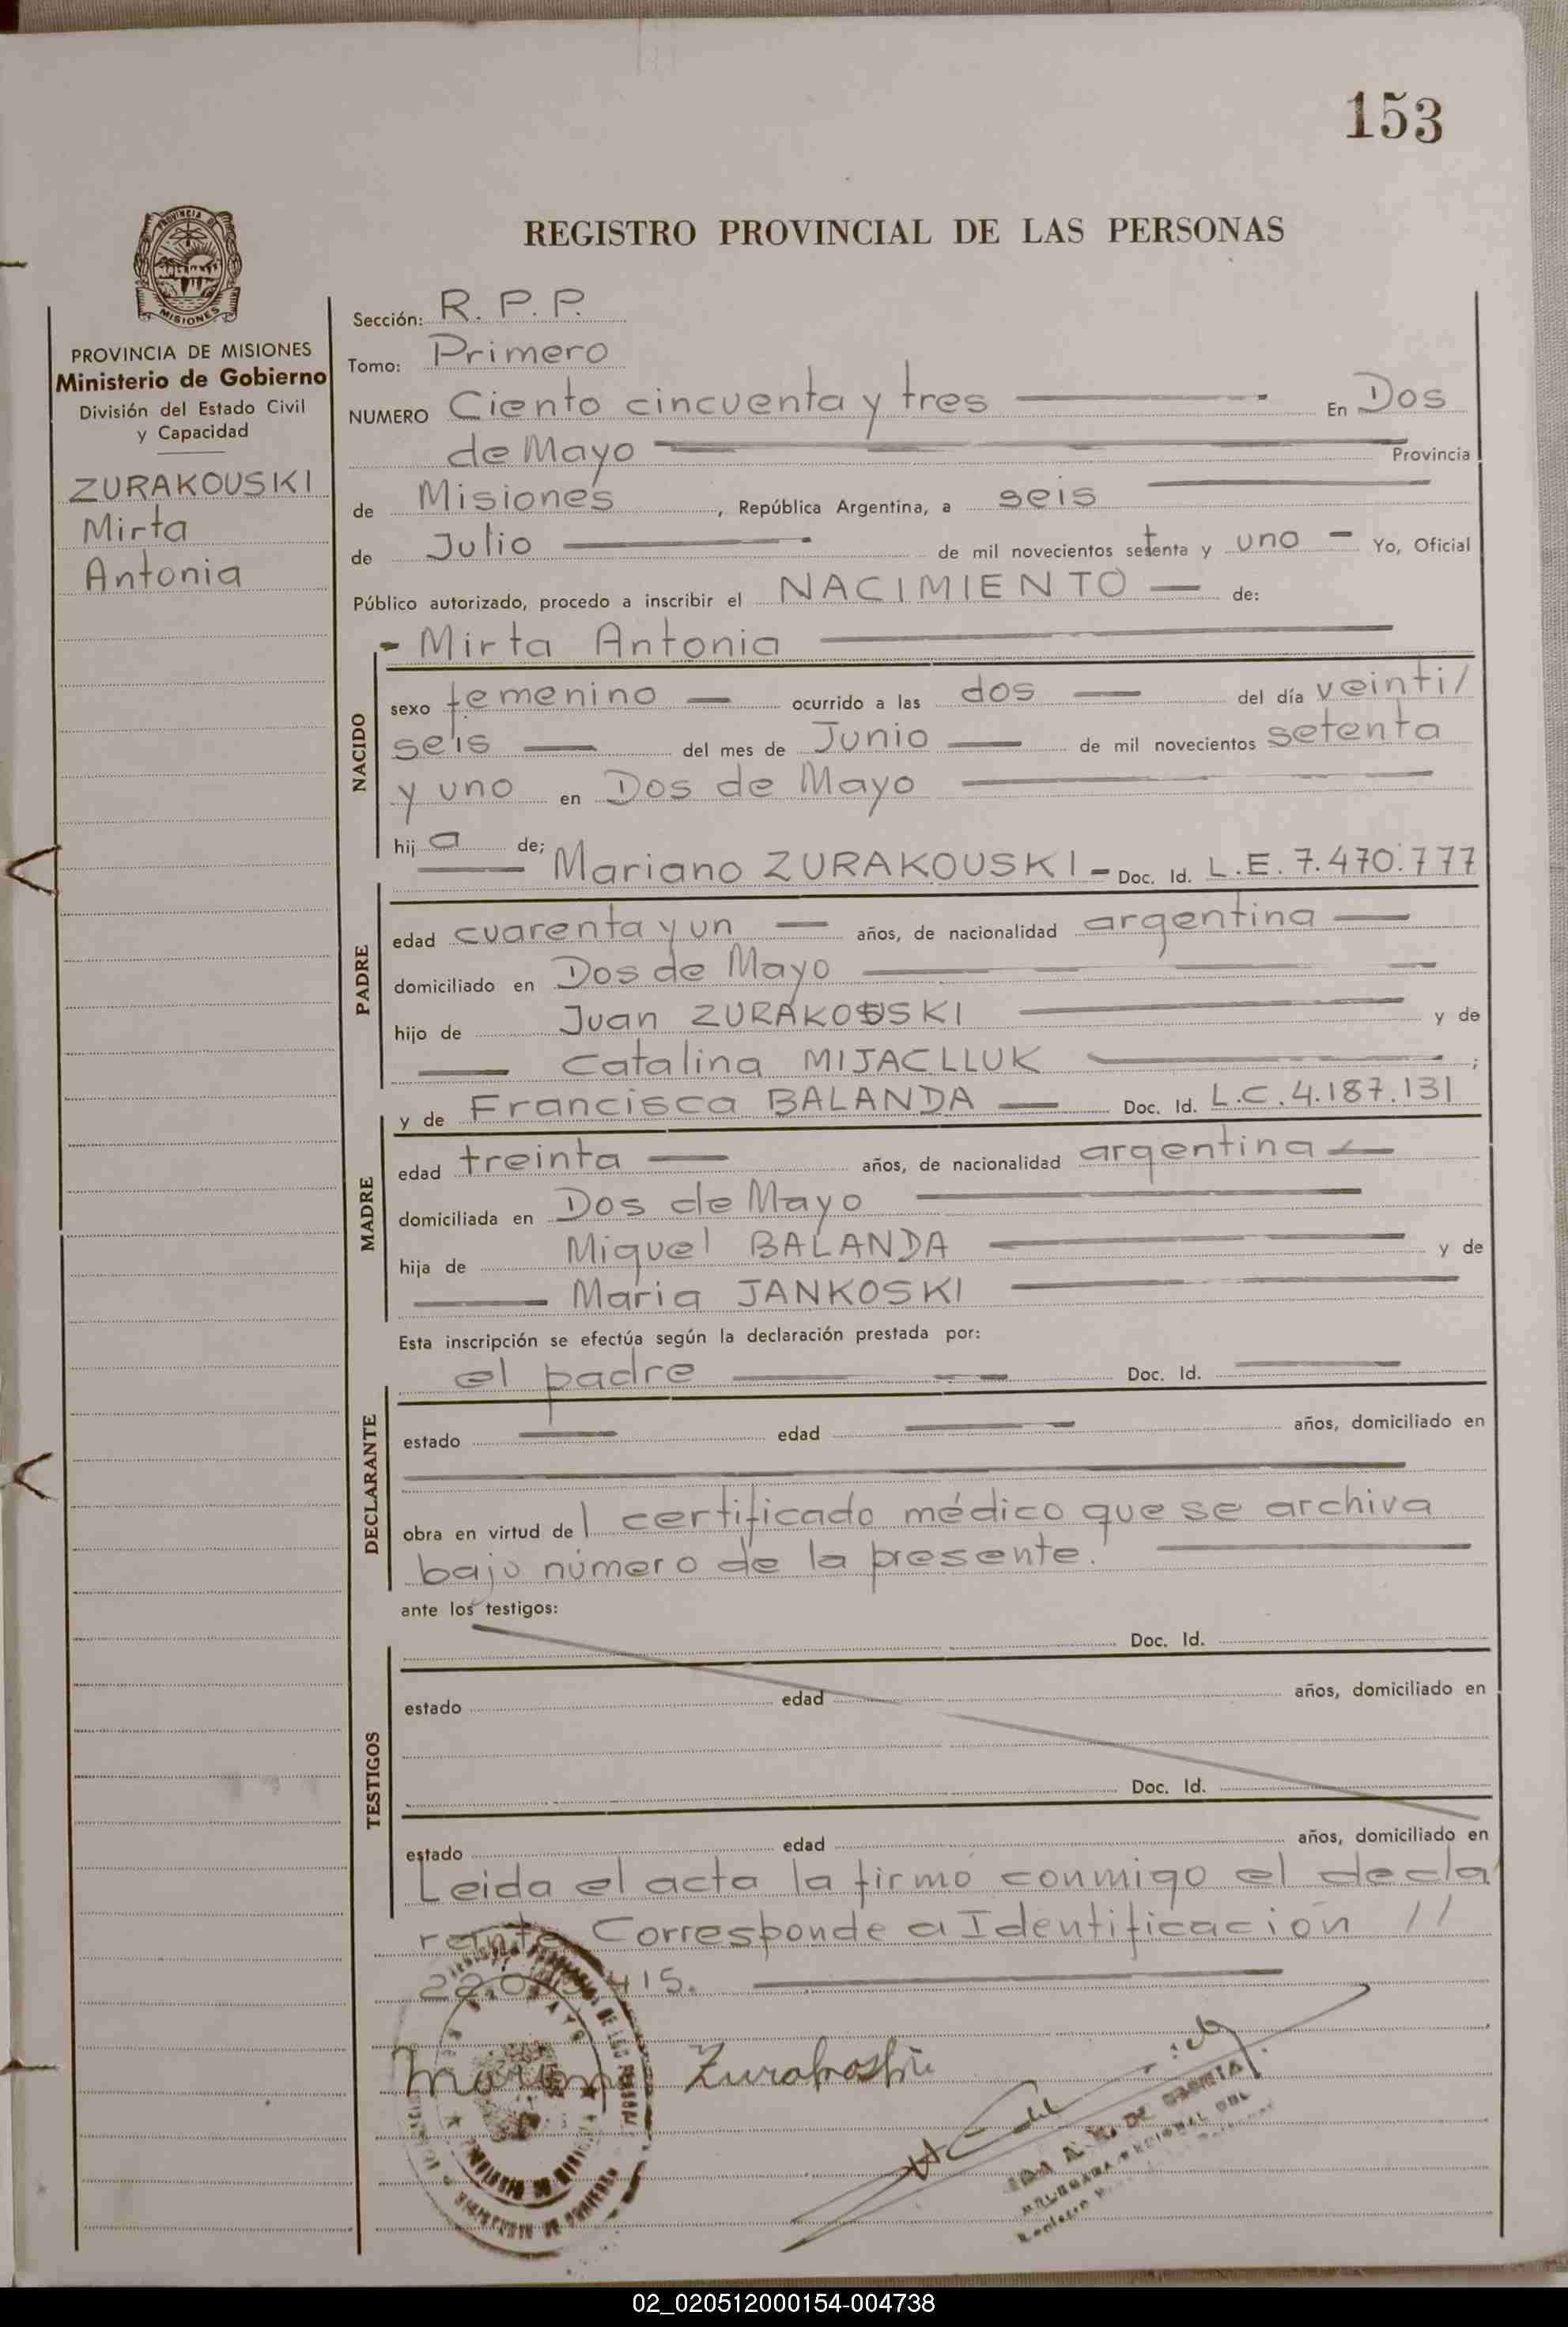 153
REGISTRO PROVINCIAL DE LAS PERSONAS
PROVINCIA DE
MISIONES
PROVINCIA DE MISIONES
Ministerio de Gobierno
División del Estado Civil
y Capacidad
ZURAKOUSKI
Mirta
Antonia
Sección: R. P. P.
Tomo: Primero
NUMERO Ciento cincuenta y tres En Dos
de Mayo Provincia
de Misiones, República Argentina, a seis
de Julio de mil novecientos setenta y uno - Yo, Oficial
Público autorizado, procedo a inscribir el NACIMIENTO — de:
- Mirta Antonia
NACIDO
sexo femenino — ocurrido a las dos — del día veinti/
seis — del mes de Junio — de mil novecientos setenta
y uno en Dos de Mayo
hija de;
Mariano ZURAKOUSKI - Doc. Id. L.E. 7.470.777
PADRE
edad cuarenta y un — años, de nacionalidad argentina —
domiciliado en Dos de Mayo
hijo de Juan ZURAKOUSKI y de
Catalina MIJACLLUK ;
y de Francisca BALANDA — Doc. Id. L.C. 4.187.131
MADRE
edad treinta — años, de nacionalidad argentina —
domiciliada en Dos de Mayo
hija de Miguel BALANDA y de
Maria JANKOSKI
Esta inscripción se efectúa según la declaración prestada por:
el padre Doc. Id.
DECLARANTE
estado edad años, domiciliado en
obra en virtud de 1 certificado médico que se archiva
bajo número de la presente.
ante los testigos:
Doc. Id.
TESTIGOS
estado edad años, domiciliado en
Doc. Id.
estado edad años, domiciliado en
Leida el acta la firmó conmigo el decla
rante Corresponde a Identificación //
415.
Mariano Zurakoski
02_020512000154-004738